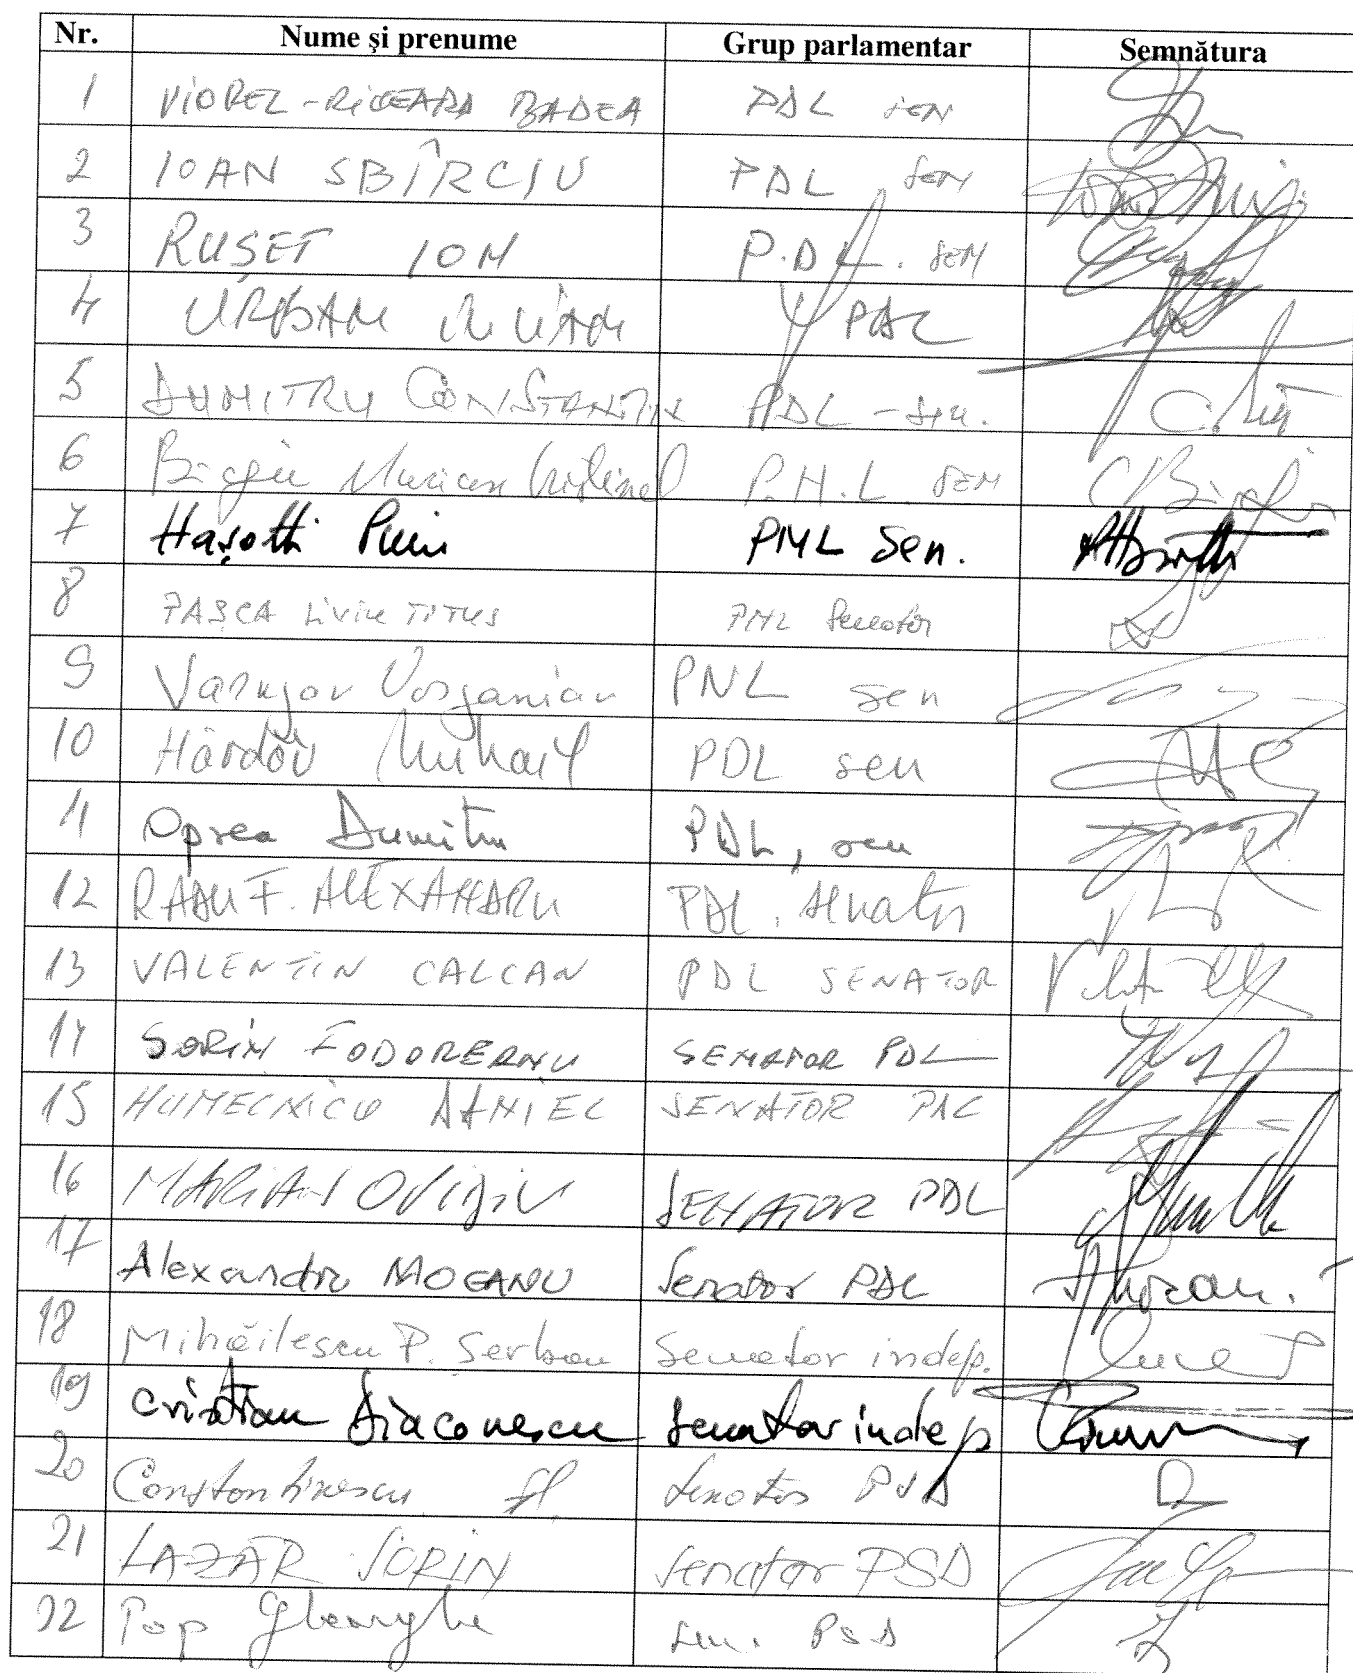 Nr. Nume şi prenume Grup parlamentar Semnătura
1 VIOREL-RICEARD BADEA PDL SEN
2 IOAN SBÎRCIU PDL SEN
3 RUŞET ION P.D.L. SEN
4 URBAN IULIAN PDL
5 DUMITRU CONSTANTIN PDL - sen.
6 Bîgiu Marian Cristinel P.N.L SEN
7 Haşotti Puiu PNL Sen.
8 PAŞCA LIVIU TITUS PNL Senator
9 Varujan Vosganian PNL sen
10 Hărdău Mihail PDL sen
11 Oprea Dumitru PDL, sen
12 RADU F. ALEXANDRU PDL, senator
13 VALENTIN CALCAN PDL SENATOR
14 SORIN FODOREANU SENATOR PDL
15 HUMELNICU DANIEL SENATOR PDL
16 MARIAN OVIDIU SENATOR PDL
17 Alexandru MOCANU Senator PDL
18 Mihăilescu P. Şerban Senator indep.
19 Cristian Diaconescu Senator indep
20 Constantinescu Fl. Senator PSD
21 LAZĂR SORIN Senator PSD
22 Pop Gheorghe sen. PSD